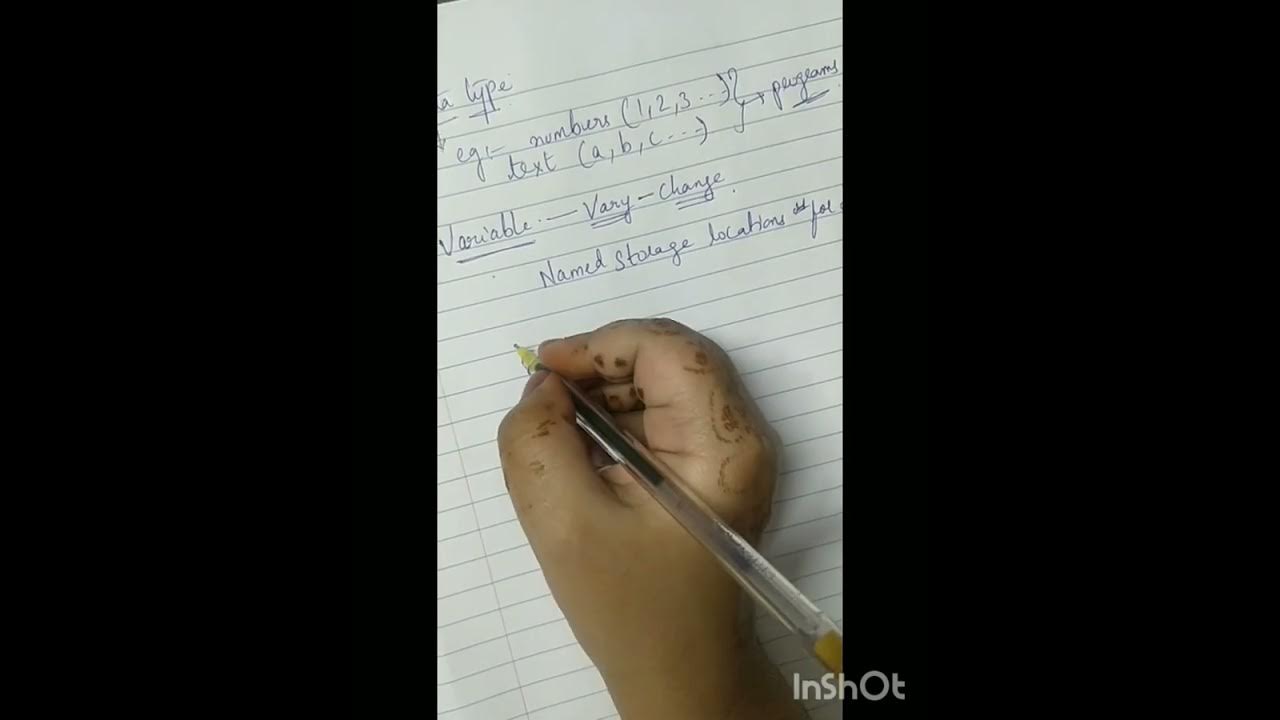 ta type
eg:- numbers (1, 2, 3 ...) } → programs
text (a, b, c ...)
Variable — Vary - Change.
Named storage locations for
InShOt